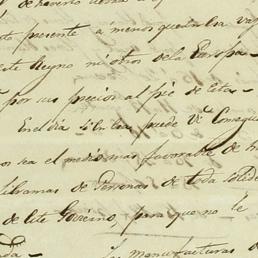 de haverlo
to presente a menos que en esa va
este Reyno ni otros de la Europa
por sus precios al pie de estas
En el dia puede V. Conseguir
nos sea el medio mas favorable de h
libramas de Personas de toda
de este Govierno, para que no le
nda=
Las manufacturas d